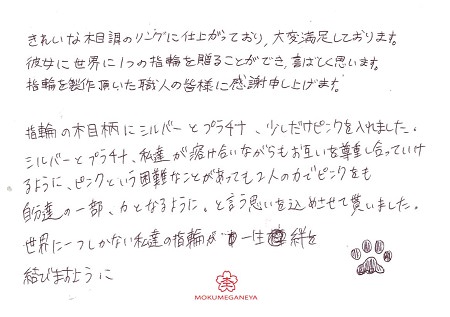 きれいな木目調のリングに仕上がっており、大変満足しております。
彼女に世界に1つの指輪を贈ることができ、喜ばしく思います。
指輪を製作頂いた職人の皆様に感謝申し上げます。
指輪の木目柄にシルバーとプラチナ、少しだけピンクを入れました。
シルバーとプラチナ、私達が溶け合いながらもお互いを尊重し合っていけ
るように、ピンクという困難なことがあっても2人の力でピンクをも
自分達の一部、力となるように。と言う思いを込めさせて貰いました。
世界に一つしかない私達の指輪が 一生 絆を
結びますように
MOKUMEGANEYA